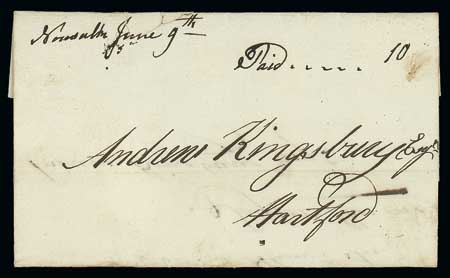 Norwalk June 9th
Paid..... 10
Andrew Kingsbury Esqr
Hartford